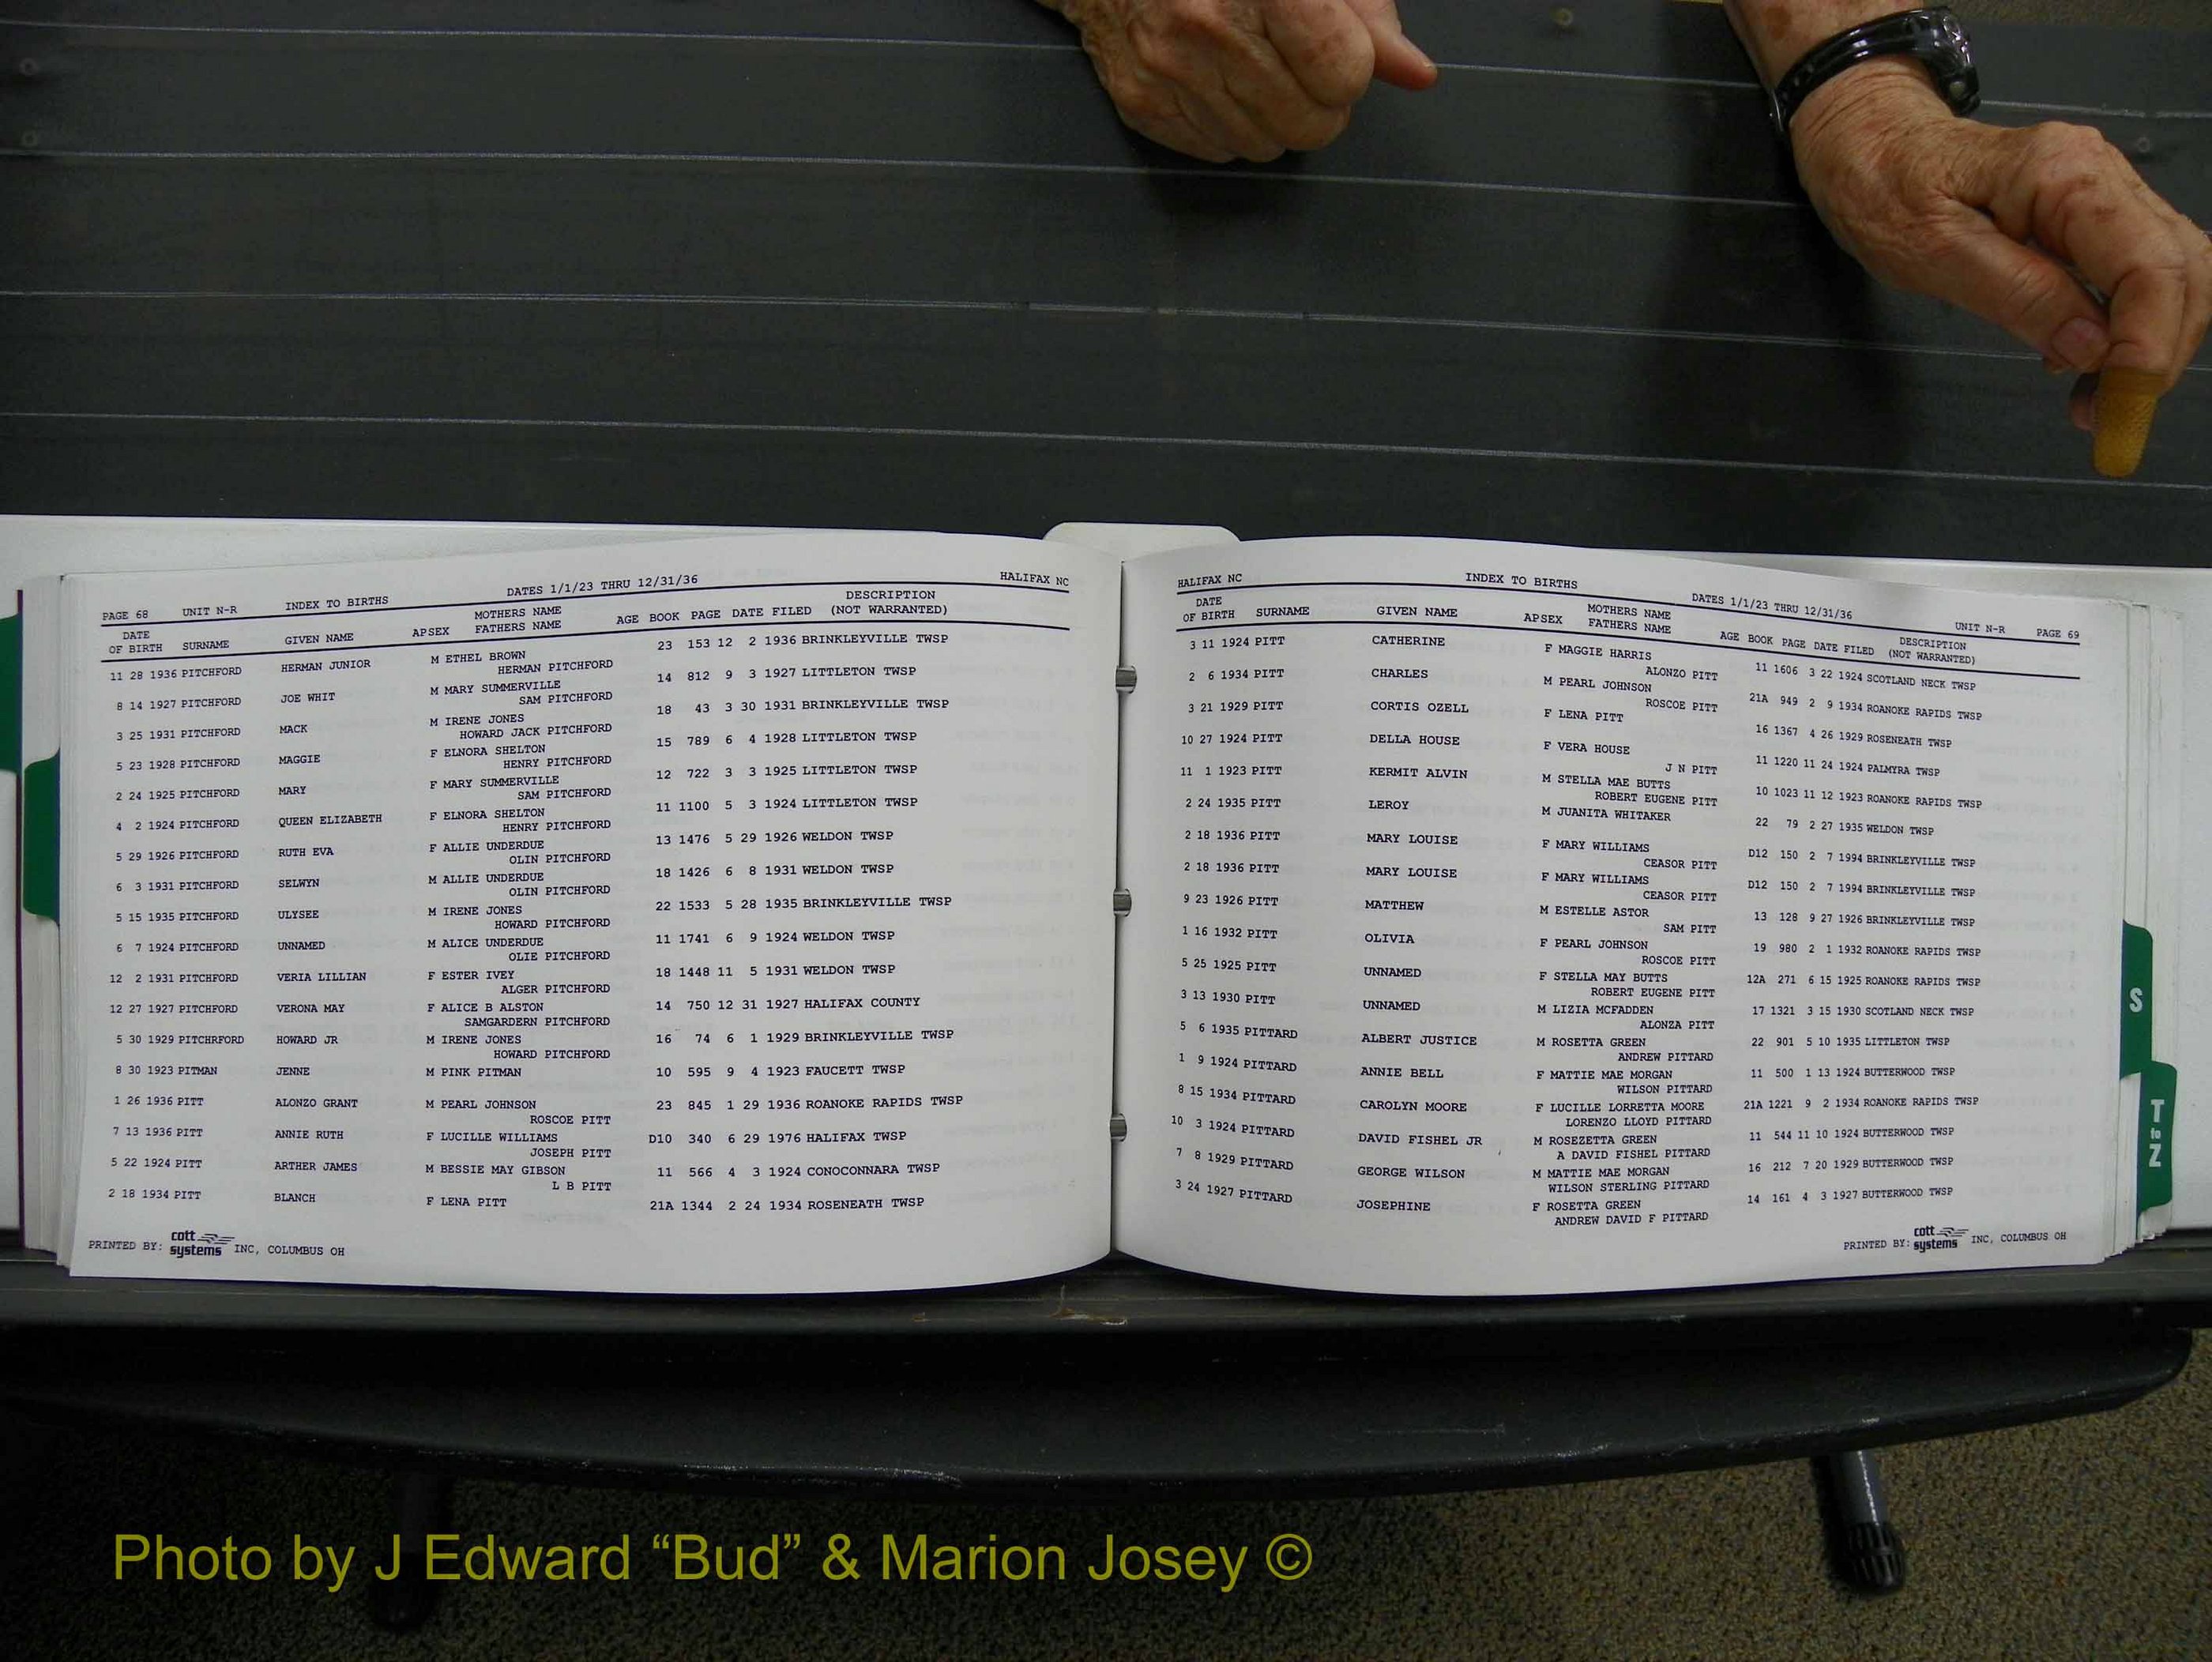 PAGE 68 UNIT N-R INDEX TO BIRTHS DATES 1/1/23 THRU 12/31/36 HALIFAX NC
DATE MOTHERS NAME DESCRIPTION
OF BIRTH SURNAME GIVEN NAME APSEX FATHERS NAME AGE BOOK PAGE DATE FILED (NOT WARRANTED)
11 28 1936 PITCHFORD HERMAN JUNIOR M ETHEL BROWN 23 153 12 2 1936 BRINKLEYVILLE TWSP
HERMAN PITCHFORD
8 14 1927 PITCHFORD JOE WHIT M MARY SUMMERVILLE 14 812 9 3 1927 LITTLETON TWSP
SAM PITCHFORD
3 25 1931 PITCHFORD MACK M IRENE JONES 18 43 3 30 1931 BRINKLEYVILLE TWSP
HOWARD JACK PITCHFORD
5 23 1928 PITCHFORD MAGGIE F ELNORA SHELTON 15 789 6 4 1928 LITTLETON TWSP
HENRY PITCHFORD
2 24 1925 PITCHFORD MARY F MARY SUMMERVILLE 12 722 3 3 1925 LITTLETON TWSP
SAM PITCHFORD
4 2 1924 PITCHFORD QUEEN ELIZABETH F ELNORA SHELTON 11 1100 5 3 1924 LITTLETON TWSP
HENRY PITCHFORD
5 29 1926 PITCHFORD RUTH EVA F ALLIE UNDERDUE 13 1476 5 29 1926 WELDON TWSP
OLIN PITCHFORD
6 3 1931 PITCHFORD SELWYN M ALLIE UNDERDUE 18 1426 6 8 1931 WELDON TWSP
OLIN PITCHFORD
5 15 1935 PITCHFORD ULYSEE M IRENE JONES 22 1533 5 28 1935 BRINKLEYVILLE TWSP
HOWARD PITCHFORD
6 7 1924 PITCHFORD UNNAMED M ALICE UNDERDUE 11 1741 6 9 1924 WELDON TWSP
OLIE PITCHFORD
12 2 1931 PITCHFORD VERIA LILLIAN F ESTER IVEY 18 1448 11 5 1931 WELDON TWSP
ALGER PITCHFORD
12 27 1927 PITCHFORD VERONA MAY F ALICE B ALSTON 14 750 12 31 1927 HALIFAX COUNTY
SAMGARDERN PITCHFORD
5 30 1929 PITCHRFORD HOWARD JR M IRENE JONES 16 74 6 1 1929 BRINKLEYVILLE TWSP
HOWARD PITCHFORD
8 30 1923 PITMAN JENNE M PINK PITMAN 10 595 9 4 1923 FAUCETT TWSP
1 26 1936 PITT ALONZO GRANT M PEARL JOHNSON 23 845 1 29 1936 ROANOKE RAPIDS TWSP
ROSCOE PITT
7 13 1936 PITT ANNIE RUTH F LUCILLE WILLIAMS D10 340 6 29 1976 HALIFAX TWSP
JOSEPH PITT
5 22 1924 PITT ARTHER JAMES M BESSIE MAY GIBSON 11 566 4 3 1924 CONOCONNARA TWSP
L B PITT
2 18 1934 PITT BLANCH F LENA PITT 21A 1344 2 24 1934 ROSENEATH TWSP
PRINTED BY: cott systems INC, COLUMBUS OH
HALIFAX NC INDEX TO BIRTHS DATES 1/1/23 THRU 12/31/36 UNIT N-R PAGE 69
DATE MOTHERS NAME DESCRIPTION
OF BIRTH SURNAME GIVEN NAME APSEX FATHERS NAME AGE BOOK PAGE DATE FILED (NOT WARRANTED)
3 11 1924 PITT CATHERINE F MAGGIE HARRIS 11 1606 3 22 1924 SCOTLAND NECK TWSP
ALONZO PITT
2 6 1934 PITT CHARLES M PEARL JOHNSON 21A 949 2 9 1934 ROANOKE RAPIDS TWSP
ROSCOE PITT
3 21 1929 PITT CORTIS OZELL F LENA PITT 16 1367 4 26 1929 ROSENEATH TWSP
10 27 1924 PITT DELLA HOUSE F VERA HOUSE 11 1220 11 24 1924 PALMYRA TWSP
J N PITT
11 1 1923 PITT KERMIT ALVIN M STELLA MAE BUTTS 10 1023 11 12 1923 ROANOKE RAPIDS TWSP
ROBERT EUGENE PITT
2 24 1935 PITT LEROY M JUANITA WHITAKER 22 79 2 27 1935 WELDON TWSP
2 18 1936 PITT MARY LOUISE F MARY WILLIAMS D12 150 2 7 1994 BRINKLEYVILLE TWSP
CEASOR PITT
2 18 1936 PITT MARY LOUISE F MARY WILLIAMS D12 150 2 7 1994 BRINKLEYVILLE TWSP
CEASOR PITT
9 23 1926 PITT MATTHEW M ESTELLE ASTOR 13 128 9 27 1926 BRINKLEYVILLE TWSP
SAM PITT
1 16 1932 PITT OLIVIA F PEARL JOHNSON 19 980 2 1 1932 ROANOKE RAPIDS TWSP
ROSCOE PITT
5 25 1925 PITT UNNAMED F STELLA MAY BUTTS 12A 271 6 15 1925 ROANOKE RAPIDS TWSP
ROBERT EUGENE PITT
3 13 1930 PITT UNNAMED M LIZIA MCFADDEN 17 1321 3 15 1930 SCOTLAND NECK TWSP
ALONZA PITT
5 6 1935 PITTARD ALBERT JUSTICE M ROSETTA GREEN 22 901 5 10 1935 LITTLETON TWSP
ANDREW PITTARD
1 9 1924 PITTARD ANNIE BELL F MATTIE MAE MORGAN 11 500 1 13 1924 BUTTERWOOD TWSP
WILSON PITTARD
8 15 1934 PITTARD CAROLYN MOORE F LUCILLE LORRETTA MOORE 21A 1221 9 2 1934 ROANOKE RAPIDS TWSP
LORENZO LLOYD PITTARD
10 3 1924 PITTARD DAVID FISHEL JR M ROSEZETTA GREEN 11 544 11 10 1924 BUTTERWOOD TWSP
A DAVID FISHEL PITTARD
7 8 1929 PITTARD GEORGE WILSON M MATTIE MAE MORGAN 16 212 7 20 1929 BUTTERWOOD TWSP
WILSON STERLING PITTARD
3 24 1927 PITTARD JOSEPHINE F ROSETTA GREEN 14 161 4 3 1927 BUTTERWOOD TWSP
ANDREW DAVID F PITTARD
PRINTED BY: cott systems INC, COLUMBUS OH
S
T to Z
Photo by J Edward “Bud” & Marion Josey ©